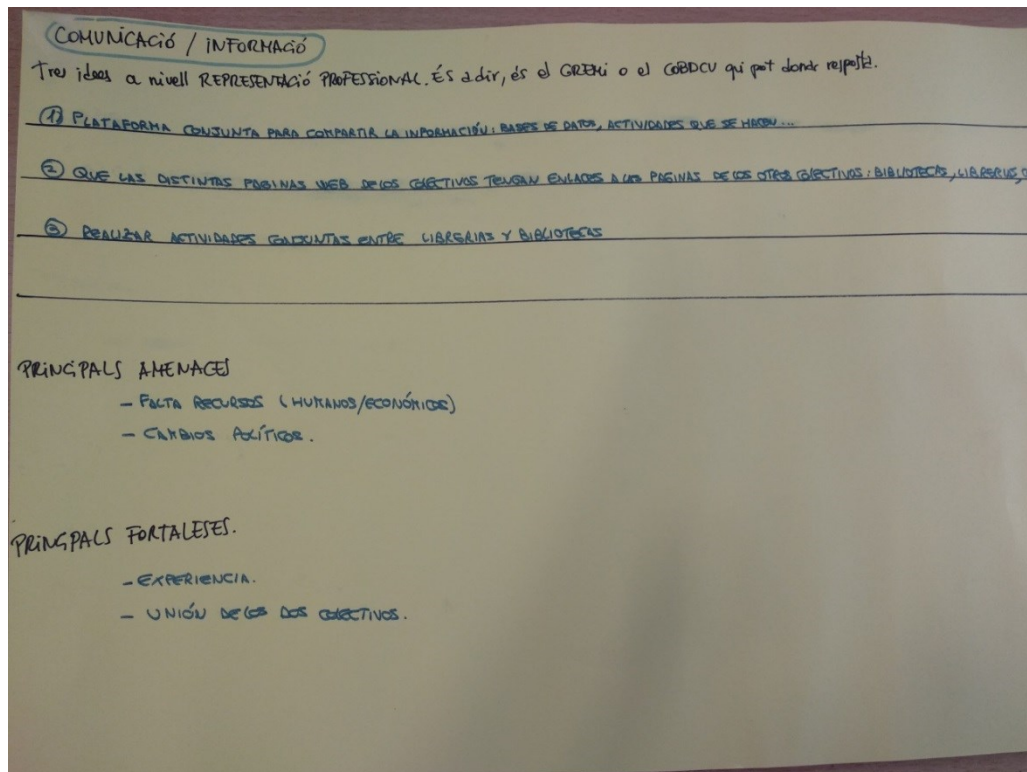 COMUNICACIÓ / INFORMACIÓ
Tres idees a nivell REPRESENTACIÓ PROFESSIONAL. És a dir, és el GREMI o el COBDCV qui pot donar resposta.
① PLATAFORMA CONJUNTA PARA COMPARTIR LA INFORMACIÓN: BASES DE DATOS, ACTIVIDADES QUE SE HACEN...
② QUE LAS DISTINTAS PAGINAS WEB DE LOS COLECTIVOS TENGAN ENLACES A LAS PAGINAS DE LOS OTROS COLECTIVOS: BIBLIOTECAS, LIBRERIAS,
③ REALIZAR ACTIVIDADES CONJUNTAS ENTRE LIBRERIAS Y BIBLIOTECAS
PRINCIPALS AMENACES
- FALTA RECURSOS (HUMANOS/ECONÓMICOS)
- CAMBIOS POLÍTICOS.
PRINCIPALS FORTALESES.
- EXPERIENCIA.
- UNIÓN DE LOS DOS COLECTIVOS.